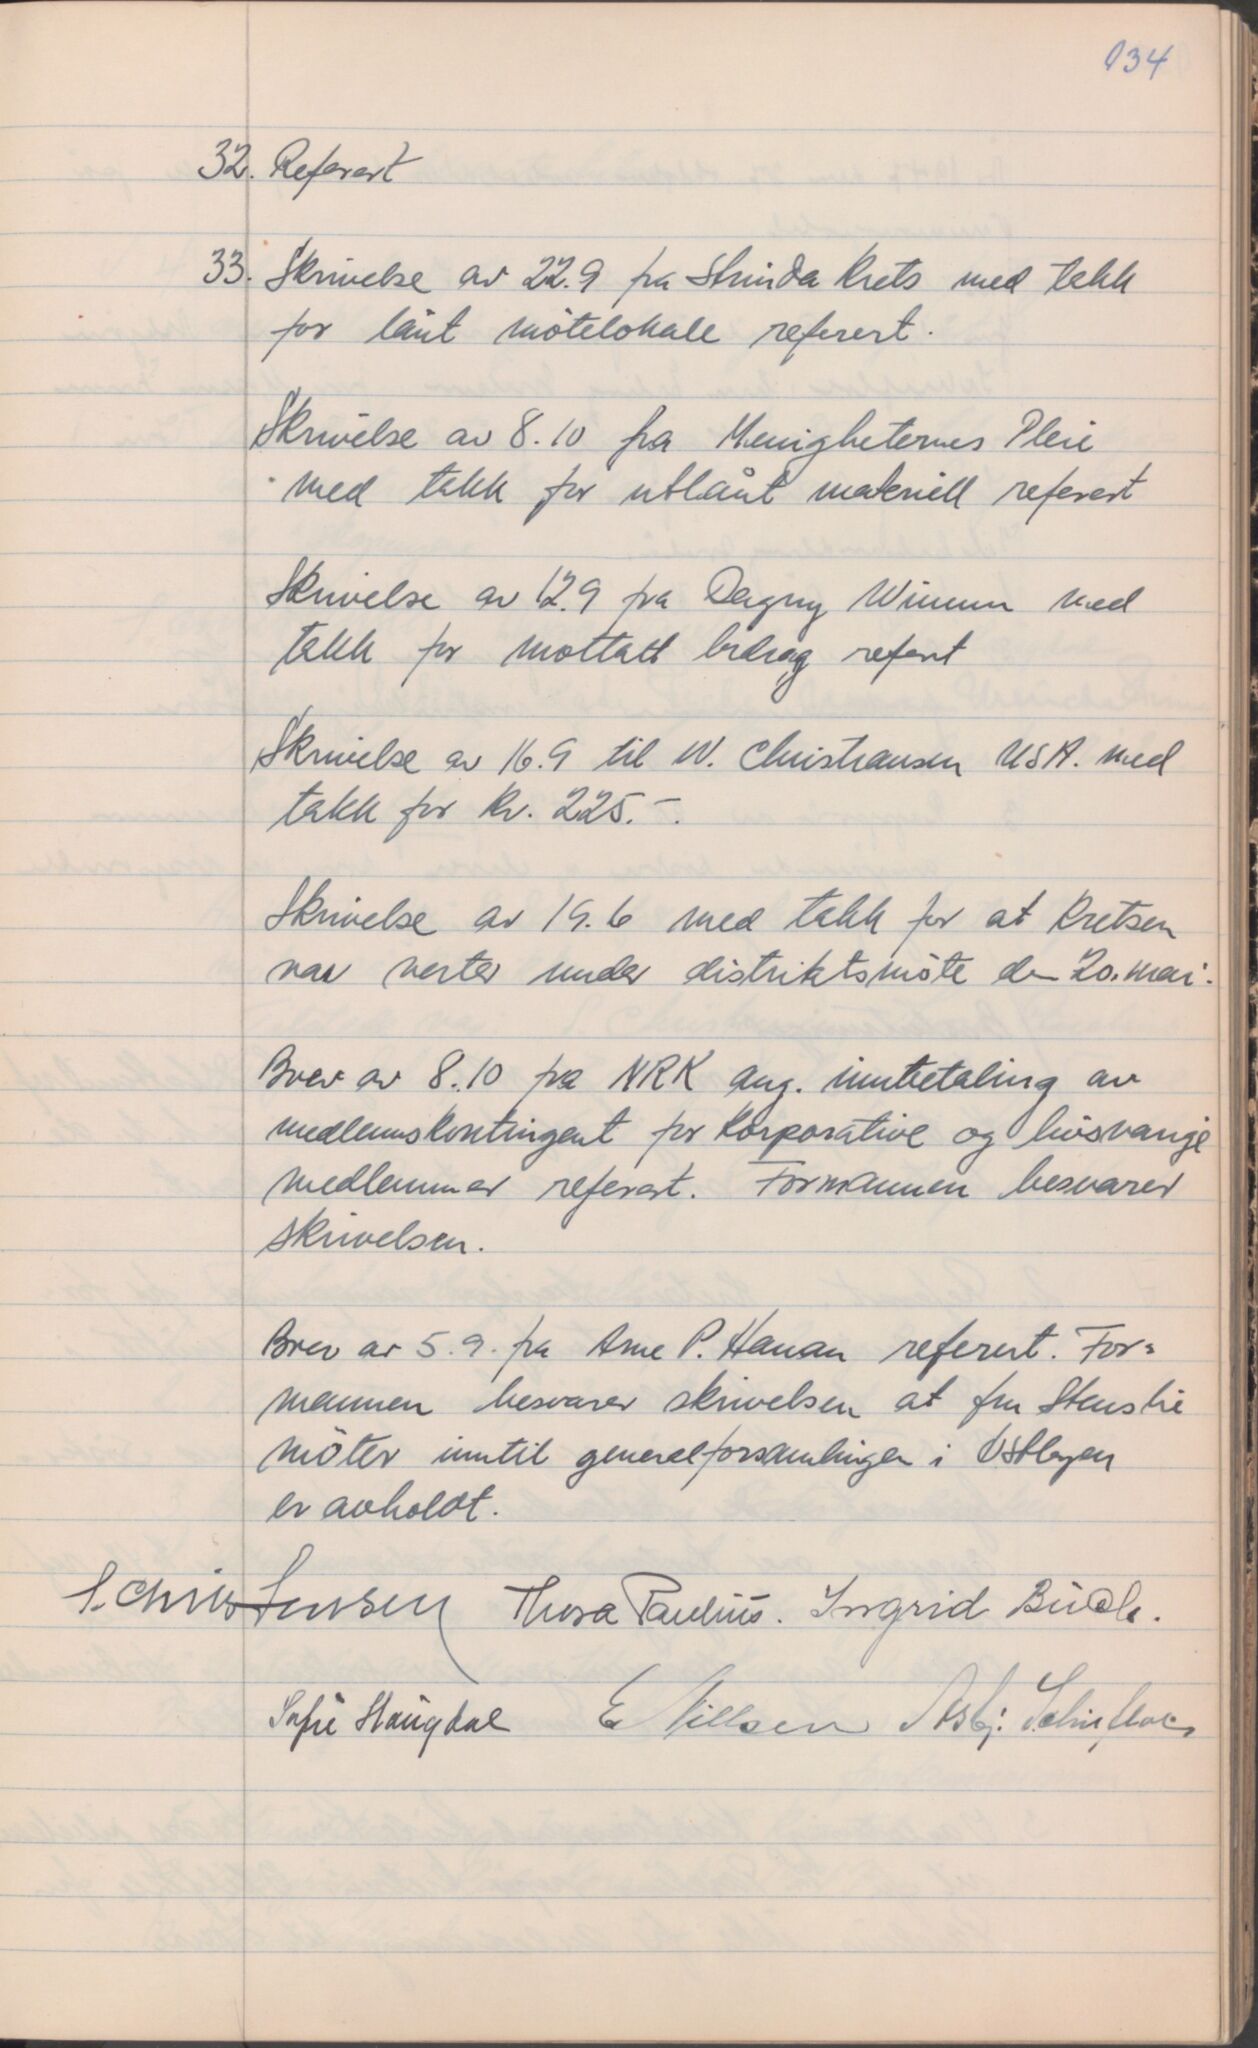 134
32. Referert
33. Skrivelse av 22.9 fra Strinda Krets med takk
for lånt mötelokale referert.
Skrivelse av 8.10 fra Menigheternes Pleie
med takk for utlånt materiell referert
Skrivelse av 12.9 fra Dagny med
takk for mottatt bidrag refert
Skrivelse av 16.9 til W. Christiansen USA. med
takk for Kr. 225.-.
Skrivelse av 19.6 med takk for at Kretsen
var verter under distriktsmöte den 20. mai.
Brev av 8.10 fra NRK ang. innbetaling av
medlemskontingent for Korporative og livsvarige
medlemmer referert. Formannen besvarer
skrivelsen.
Brev av 5.9. fra Arne P. referert. For=
mannen besvarer skrivelsen at fru
möter inntil generalforsamlingen i Östbyen
er avholdt.
Thora Paulius. Ingrid Buch.
Sofie Haugdal E Nillsen Asbj.